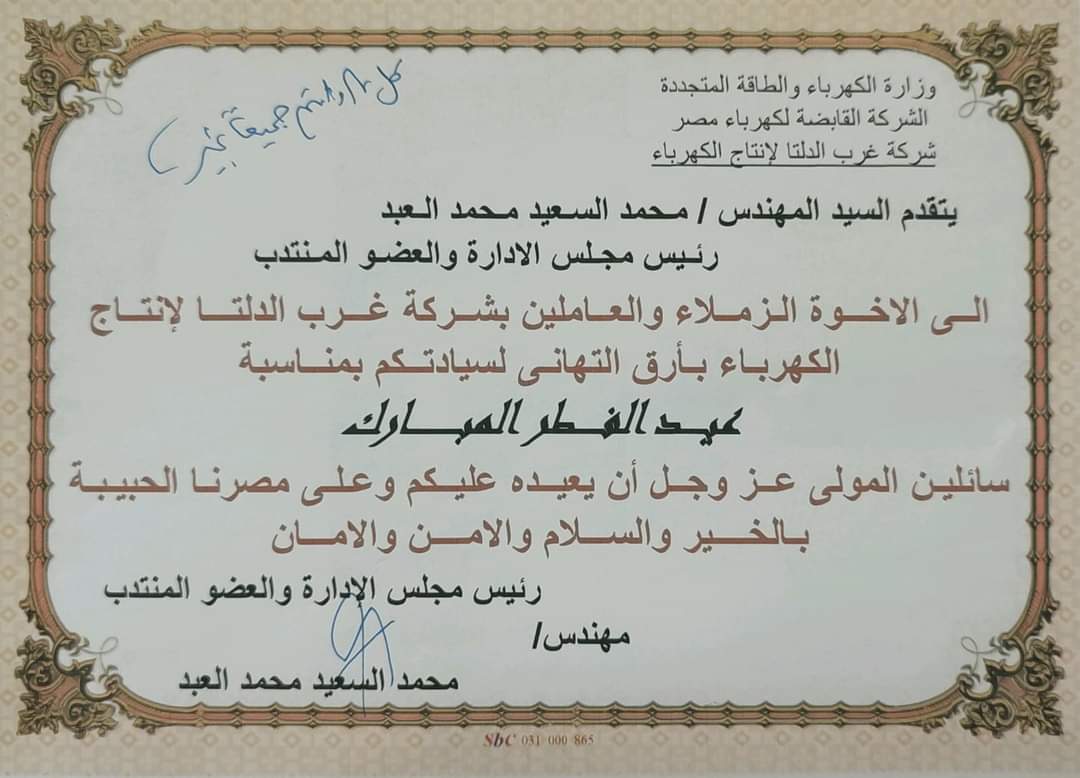 وزارة الكهرباء والطاقة المتجددة
الشركة القابضة لكهرباء مصر
شركة غرب الدلتا لإنتاج الكهرباء
كل عام وأنتم جميعا بخير
يتقدم السيد المهندس / محمد السعيد محمد العبد
رئيس مجلس الادارة والعضو المنتدب
الى الاخوة الزملاء والعاملين بشركة غرب الدلتا لإنتاج
الكهرباء بأرق التهانى لسيادتكم بمناسبة
عيد الفطر المبارك
سائلين المولى عز وجل أن يعيده عليكم وعلى مصرنا الحبيبة
بالخير والسلام والامن والامان
رئيس مجلس الإدارة والعضو المنتدب
مهندس/
محمد السعيد محمد العبد
SbC 031 000 865